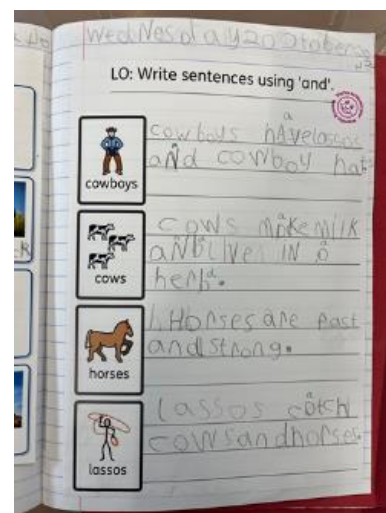 Wednesday 20 October
LO: Write sentences using 'and'.
cowboys have lascos
and cowboy hat
cowboys
cows make milk
and live in a
cows
herd.
Horses are fast
and strong.
horses
lassos catch
cows and horses.
lassos